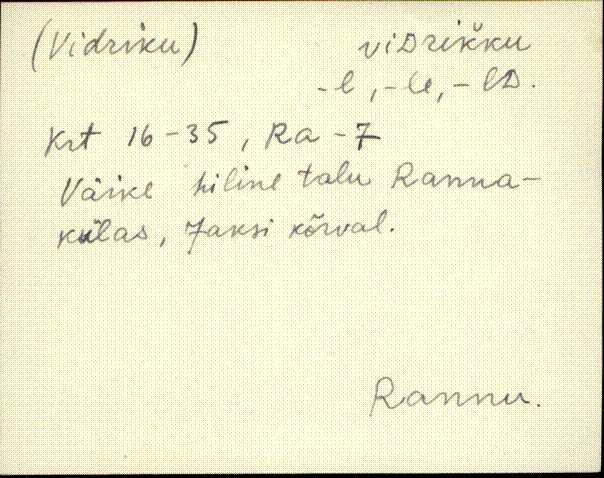 (Vidriku) viDrik̆ku
-l, -le, -lD.
Krt 16-35, Ra-7
Väike hiline talu Ranna-
külas, Jaksi kõrval.
Rannu.